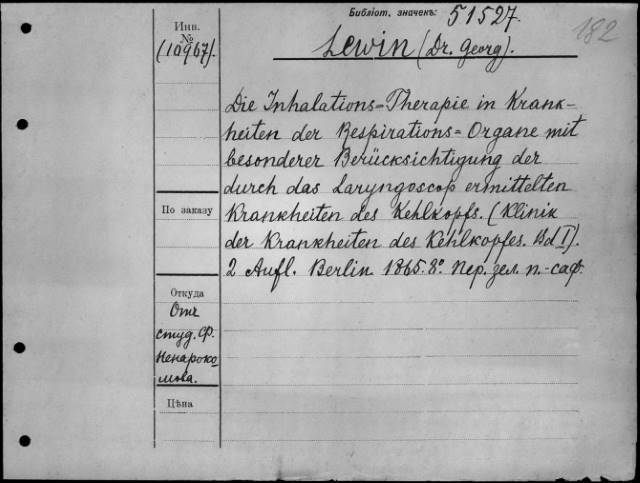 Библіот. значекъ: 51527.
182
Инв.
№
(10967).
Lewin (Dr. Georg).
Die Inhalations=Therapie in Krank-
heiten der Respirations=Organe mit
besonderer Berücksichtigung der
durch das Laryngoscop ermittelten
Krankheiten des Kehlkopfs. (Klinik
der Krankheiten des Kehlkopfes. Bd I).
2 Aufl. Berlin. 1865. 8º. Пер. зел. п.-саф.
По заказу
Откуда
Отъ
студ. Ф.
Ненароко-
мова.
Цѣна